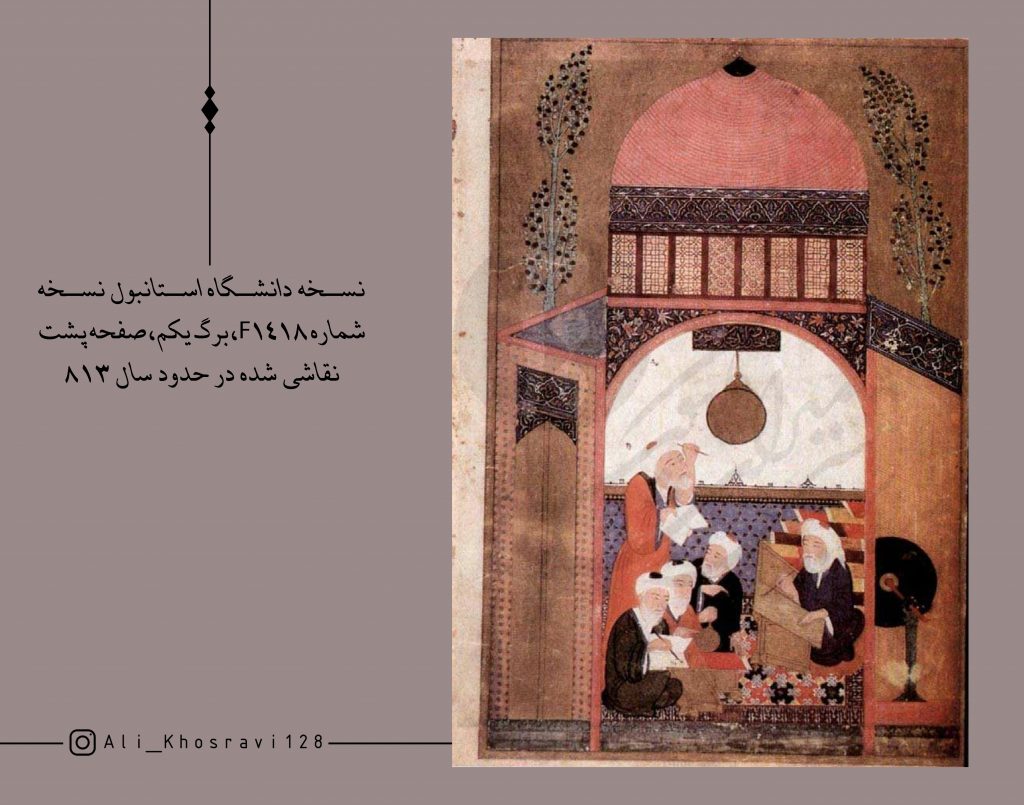 نسخه دانشگاه استانبول نسخه
شماره F۱٤۱۸،برگ یکم،صفحه پشت
نقاشی شده در حدود سال ۸۱۳
Ali_Khosravi128